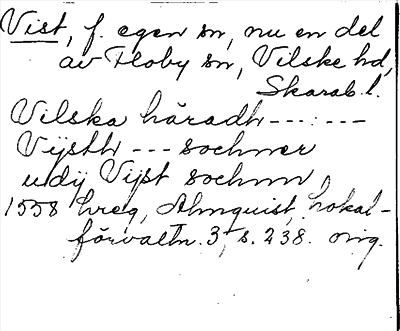 Vist, f. egen sn, nu en del
av Floby sn, Vilske hd,
Skarab. l.
Vilska häradh ---:---
Vijsth --- sochner
udij Vijst sochnn
1558 hreg, Almquist, Lokal-
förvaltn. 3, s. 238. orig.